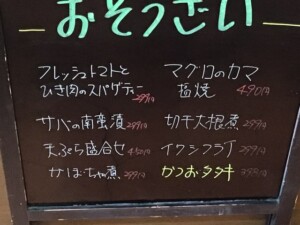 おそうざい
フレッシュトマトと
ひき肉のスパゲティー 299円
サバの南蛮漬 299円
天ぷら盛合せ 450円
かぼちゃ煮 299円
マグロのカマ
塩焼 490円
切干大根煮 299円
イワシフライ 299円
かつおタタキ 399円